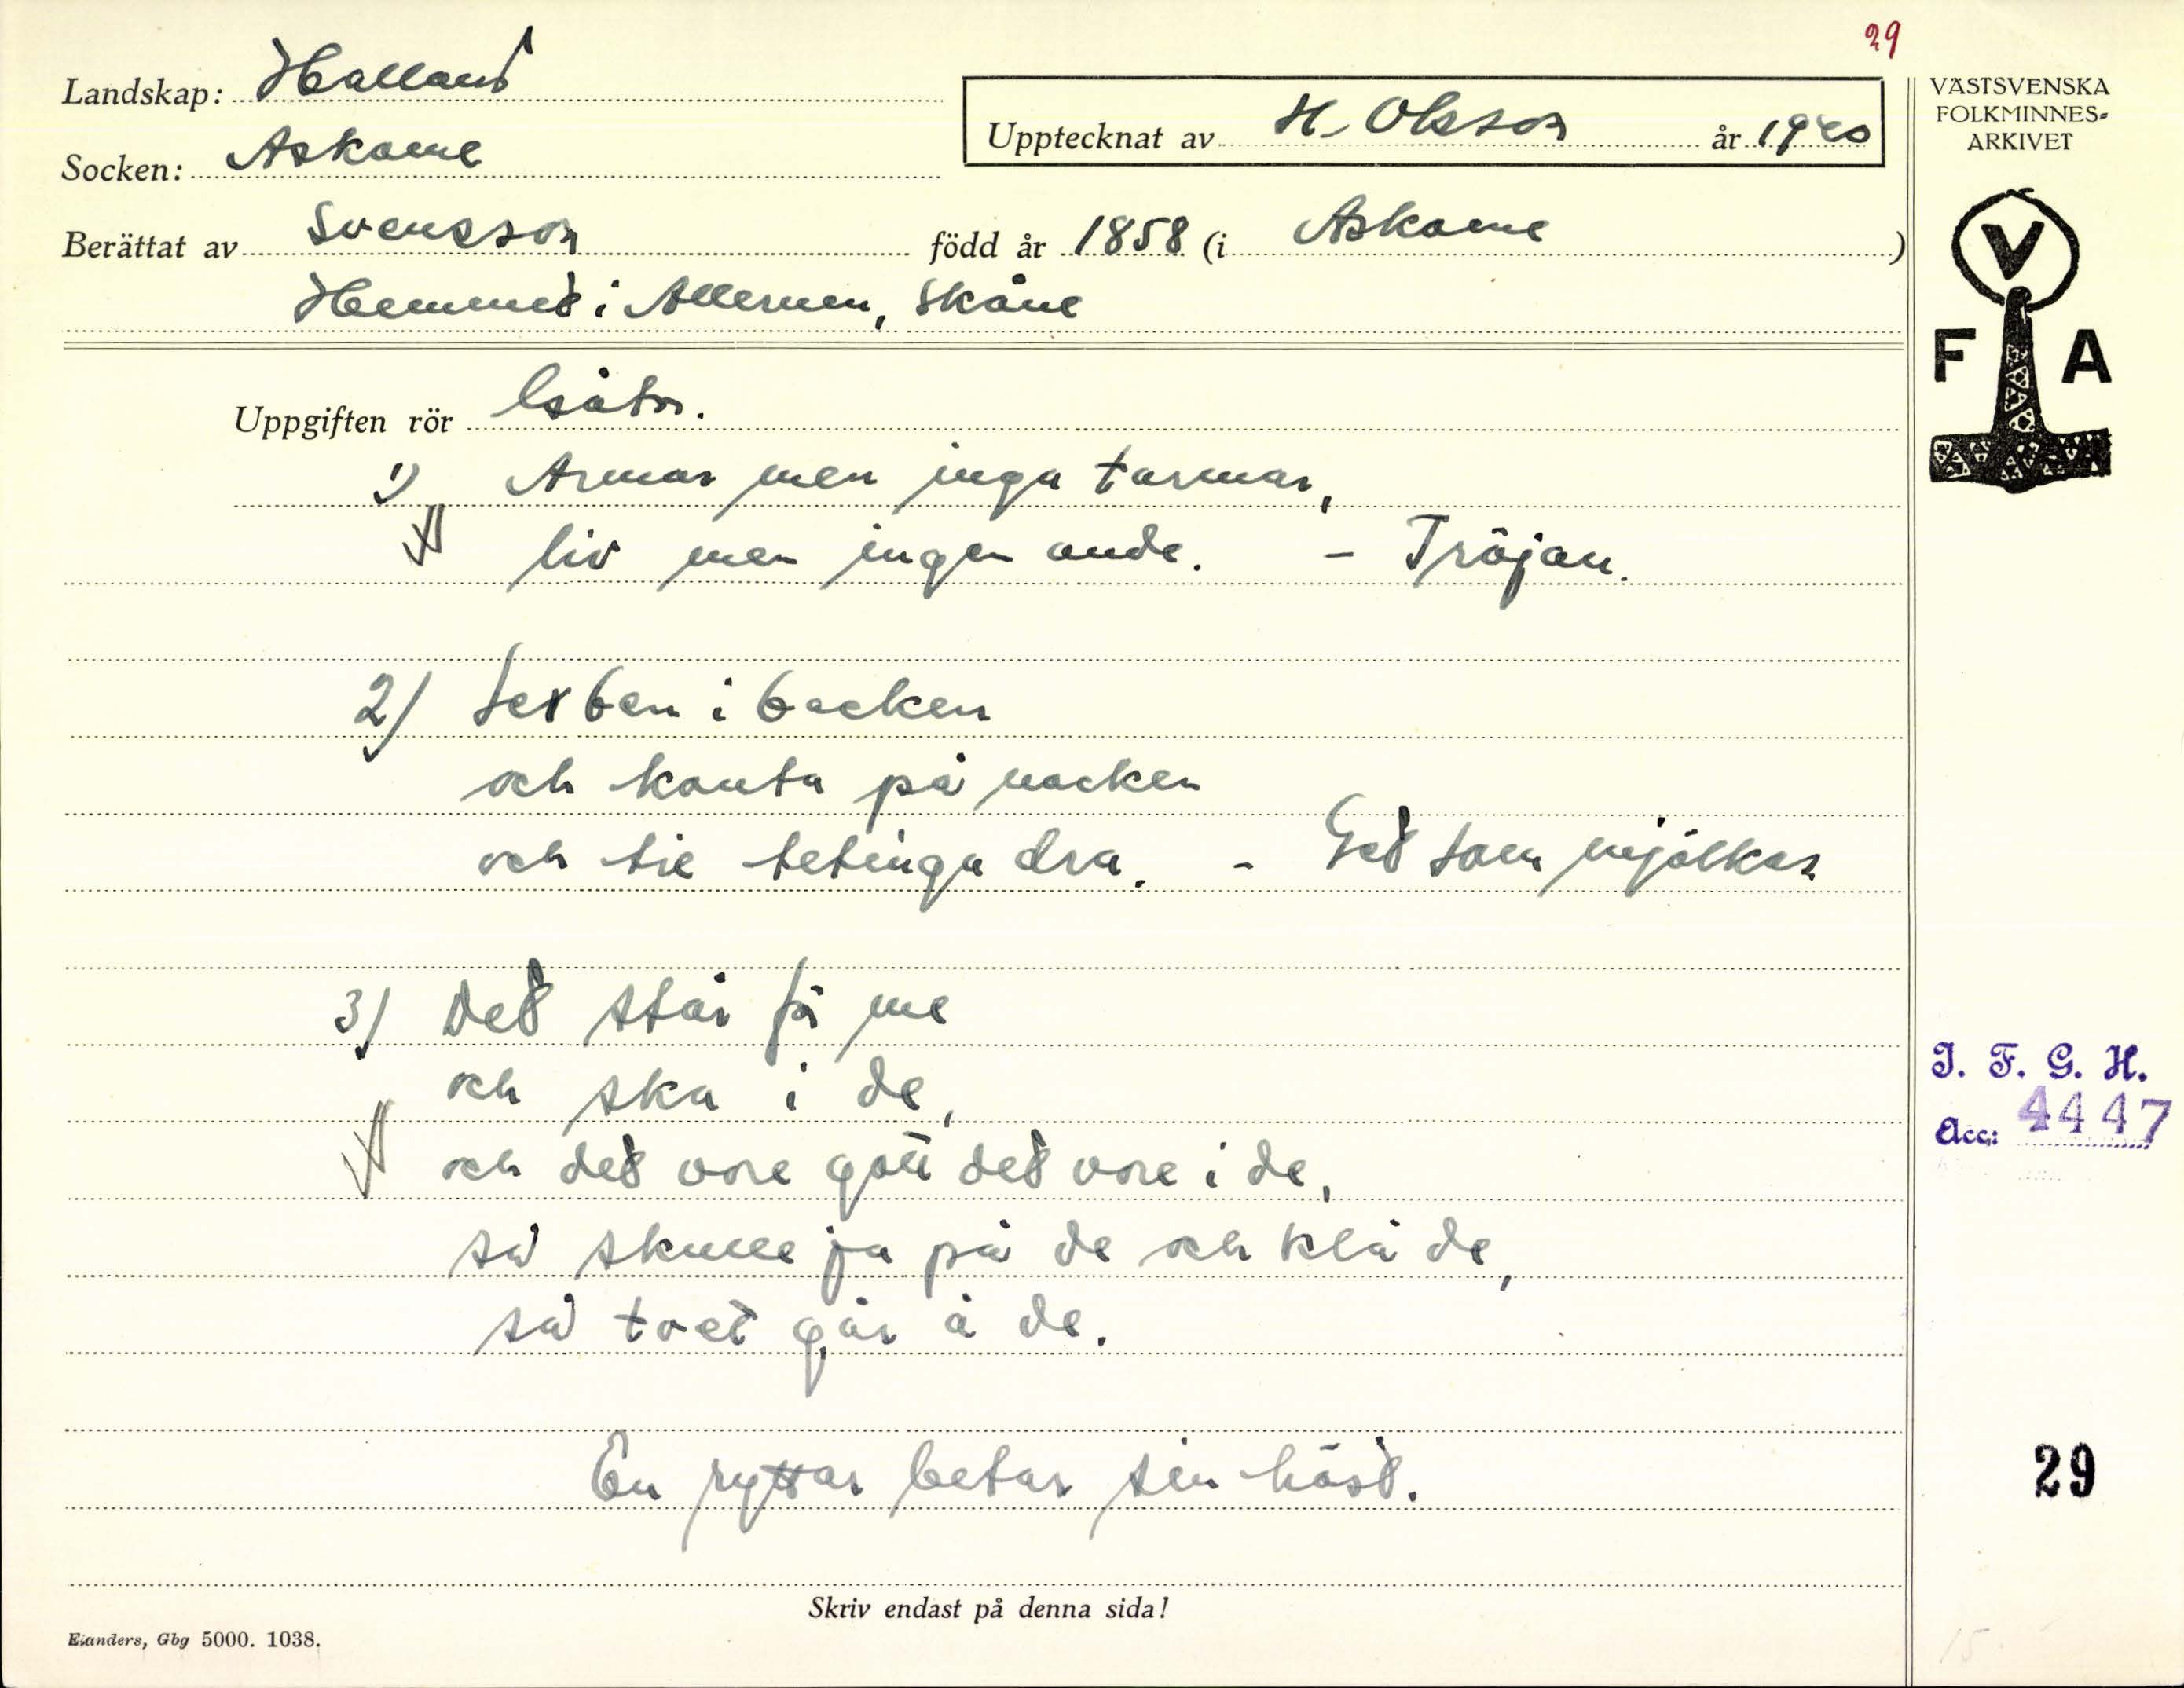 29
Landskap: Halland
Upptecknat av H. Olsson år 1940
VÄSTSVENSKA
FOLKMINNES-
ARKIVET
Socken: Askome
Berättat av Svensson född år 1858 (i Askome)
Hemmet i Allerum, Skåne
V
F A
Uppgiften rör Gåtor.
1) Armar men inga tarmar,
liv men ingen ande. - Tröjan.
2) Sex ben i backen
och kanta på nacken
och tie tetinga dra. - Get som mjölkas
3) Det står få me
och ska i de,
och det vore gott det vore i de,
så skulle ja på de och klä de,
så tvet går å de.
En ryttar betar sin häst.
I. F. G. H.
Acc: 4447
29
Skriv endast på denna sida!
Elanders, Gbg 5000. 1038.
15